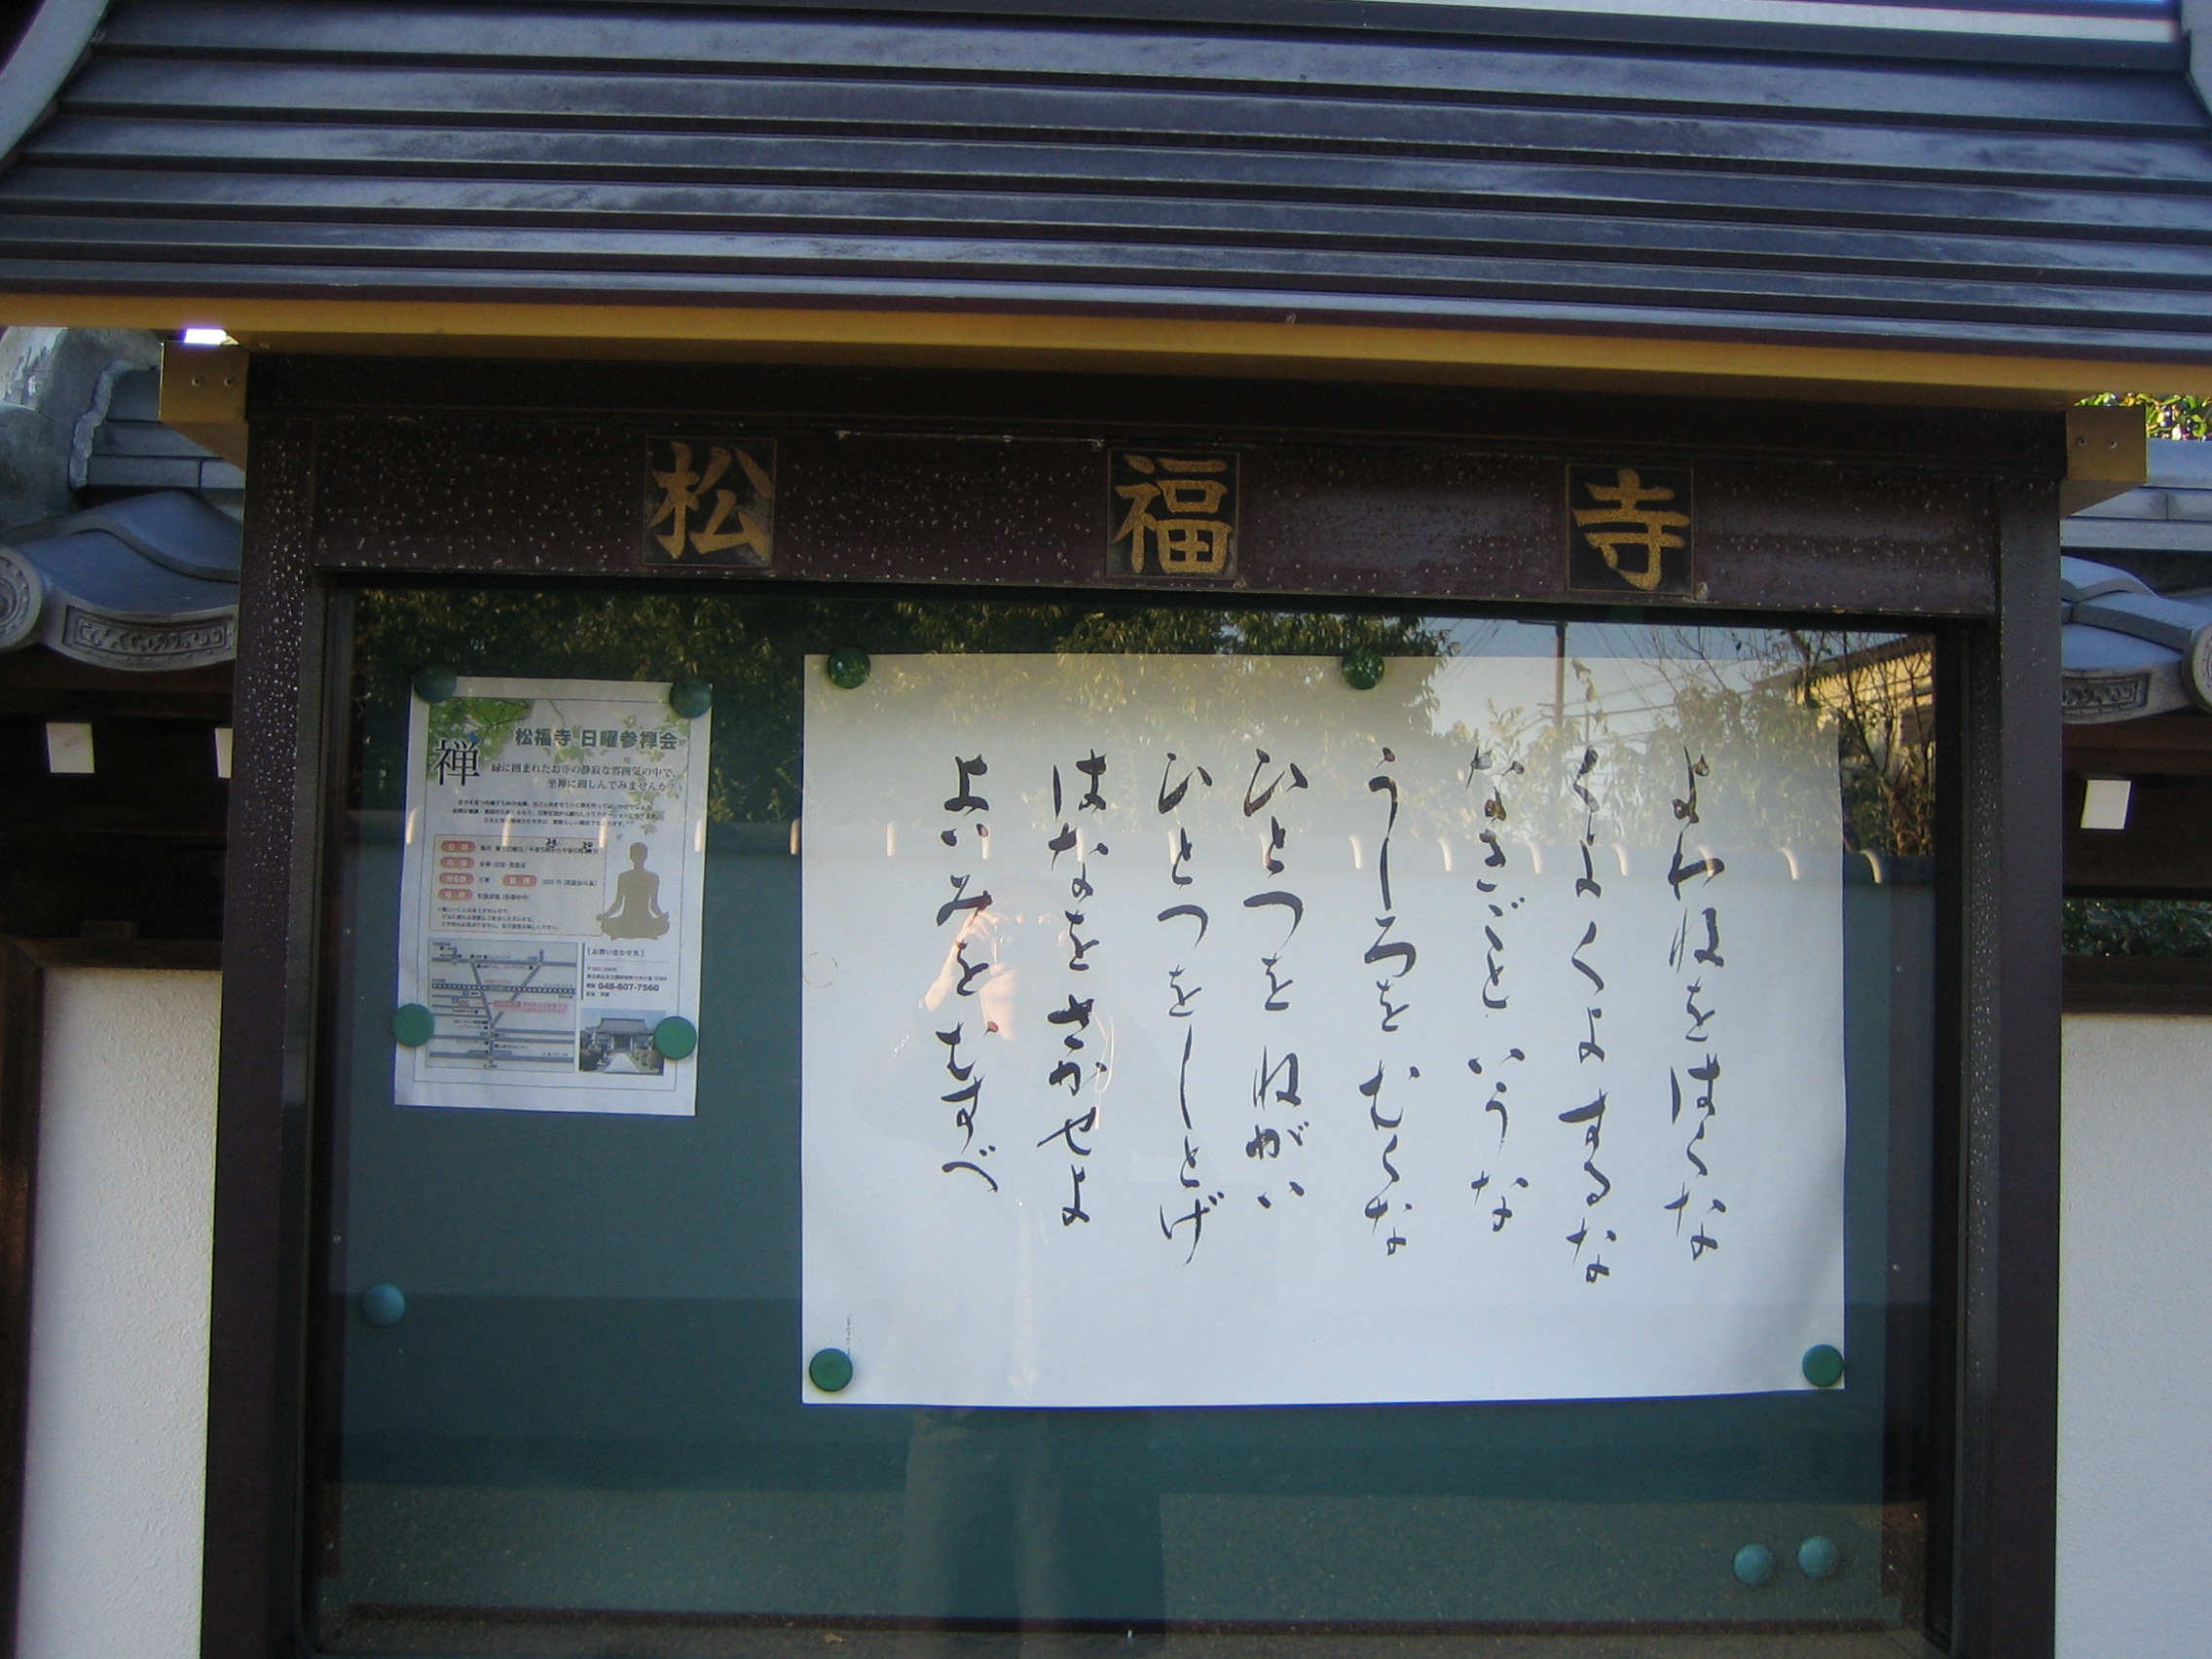 松福寺
よわねをはくな
くよくよするな
なきごと いうな
うしろを むくな
ひとつを ねがい
ひとつをしとげ
はなを さかせよ
よいみを むすべ
禅
松福寺 日曜参禅会
緑に囲まれたお寺の静寂な雰囲気の中で、
坐禅に親しんでみませんか?
[お問い合わせ先]
048-607-7560